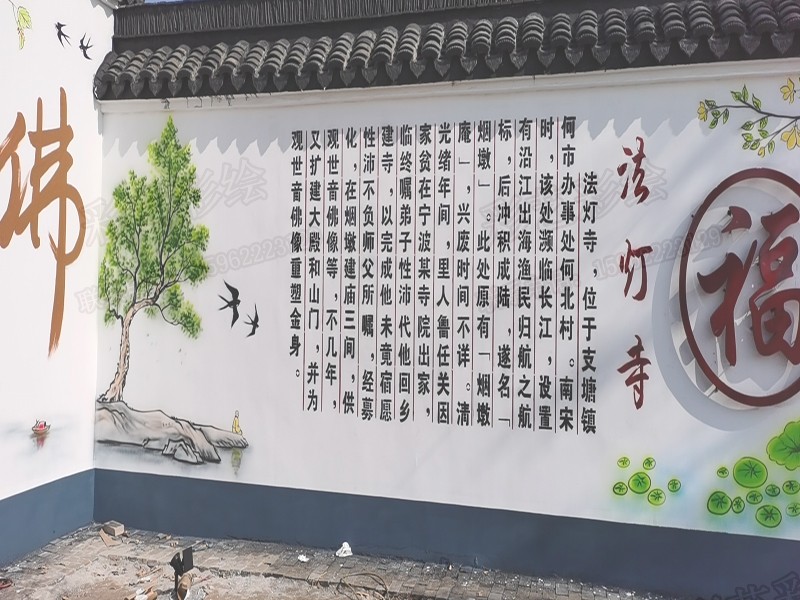 法灯寺
法灯寺，位于支塘镇
何市办事处何北村。南宋
时，该处濒临长江，设置
有沿江出海渔民归航之航
标，后冲积成陆，遂名「
烟墩」。此处原有「烟墩
庵」，兴废时间不详。清
光绪年间，里人鲁任关因
家贫在宁波某寺院出家，
临终嘱弟子性沛代他回乡
建寺，以完成他未竟宿愿
性沛不负师父所嘱，经募
化，在烟墩建庙三间，供
观世音佛像等，不几年，
又扩建大殿和山门，并为
观世音佛像重塑金身。
福
佛